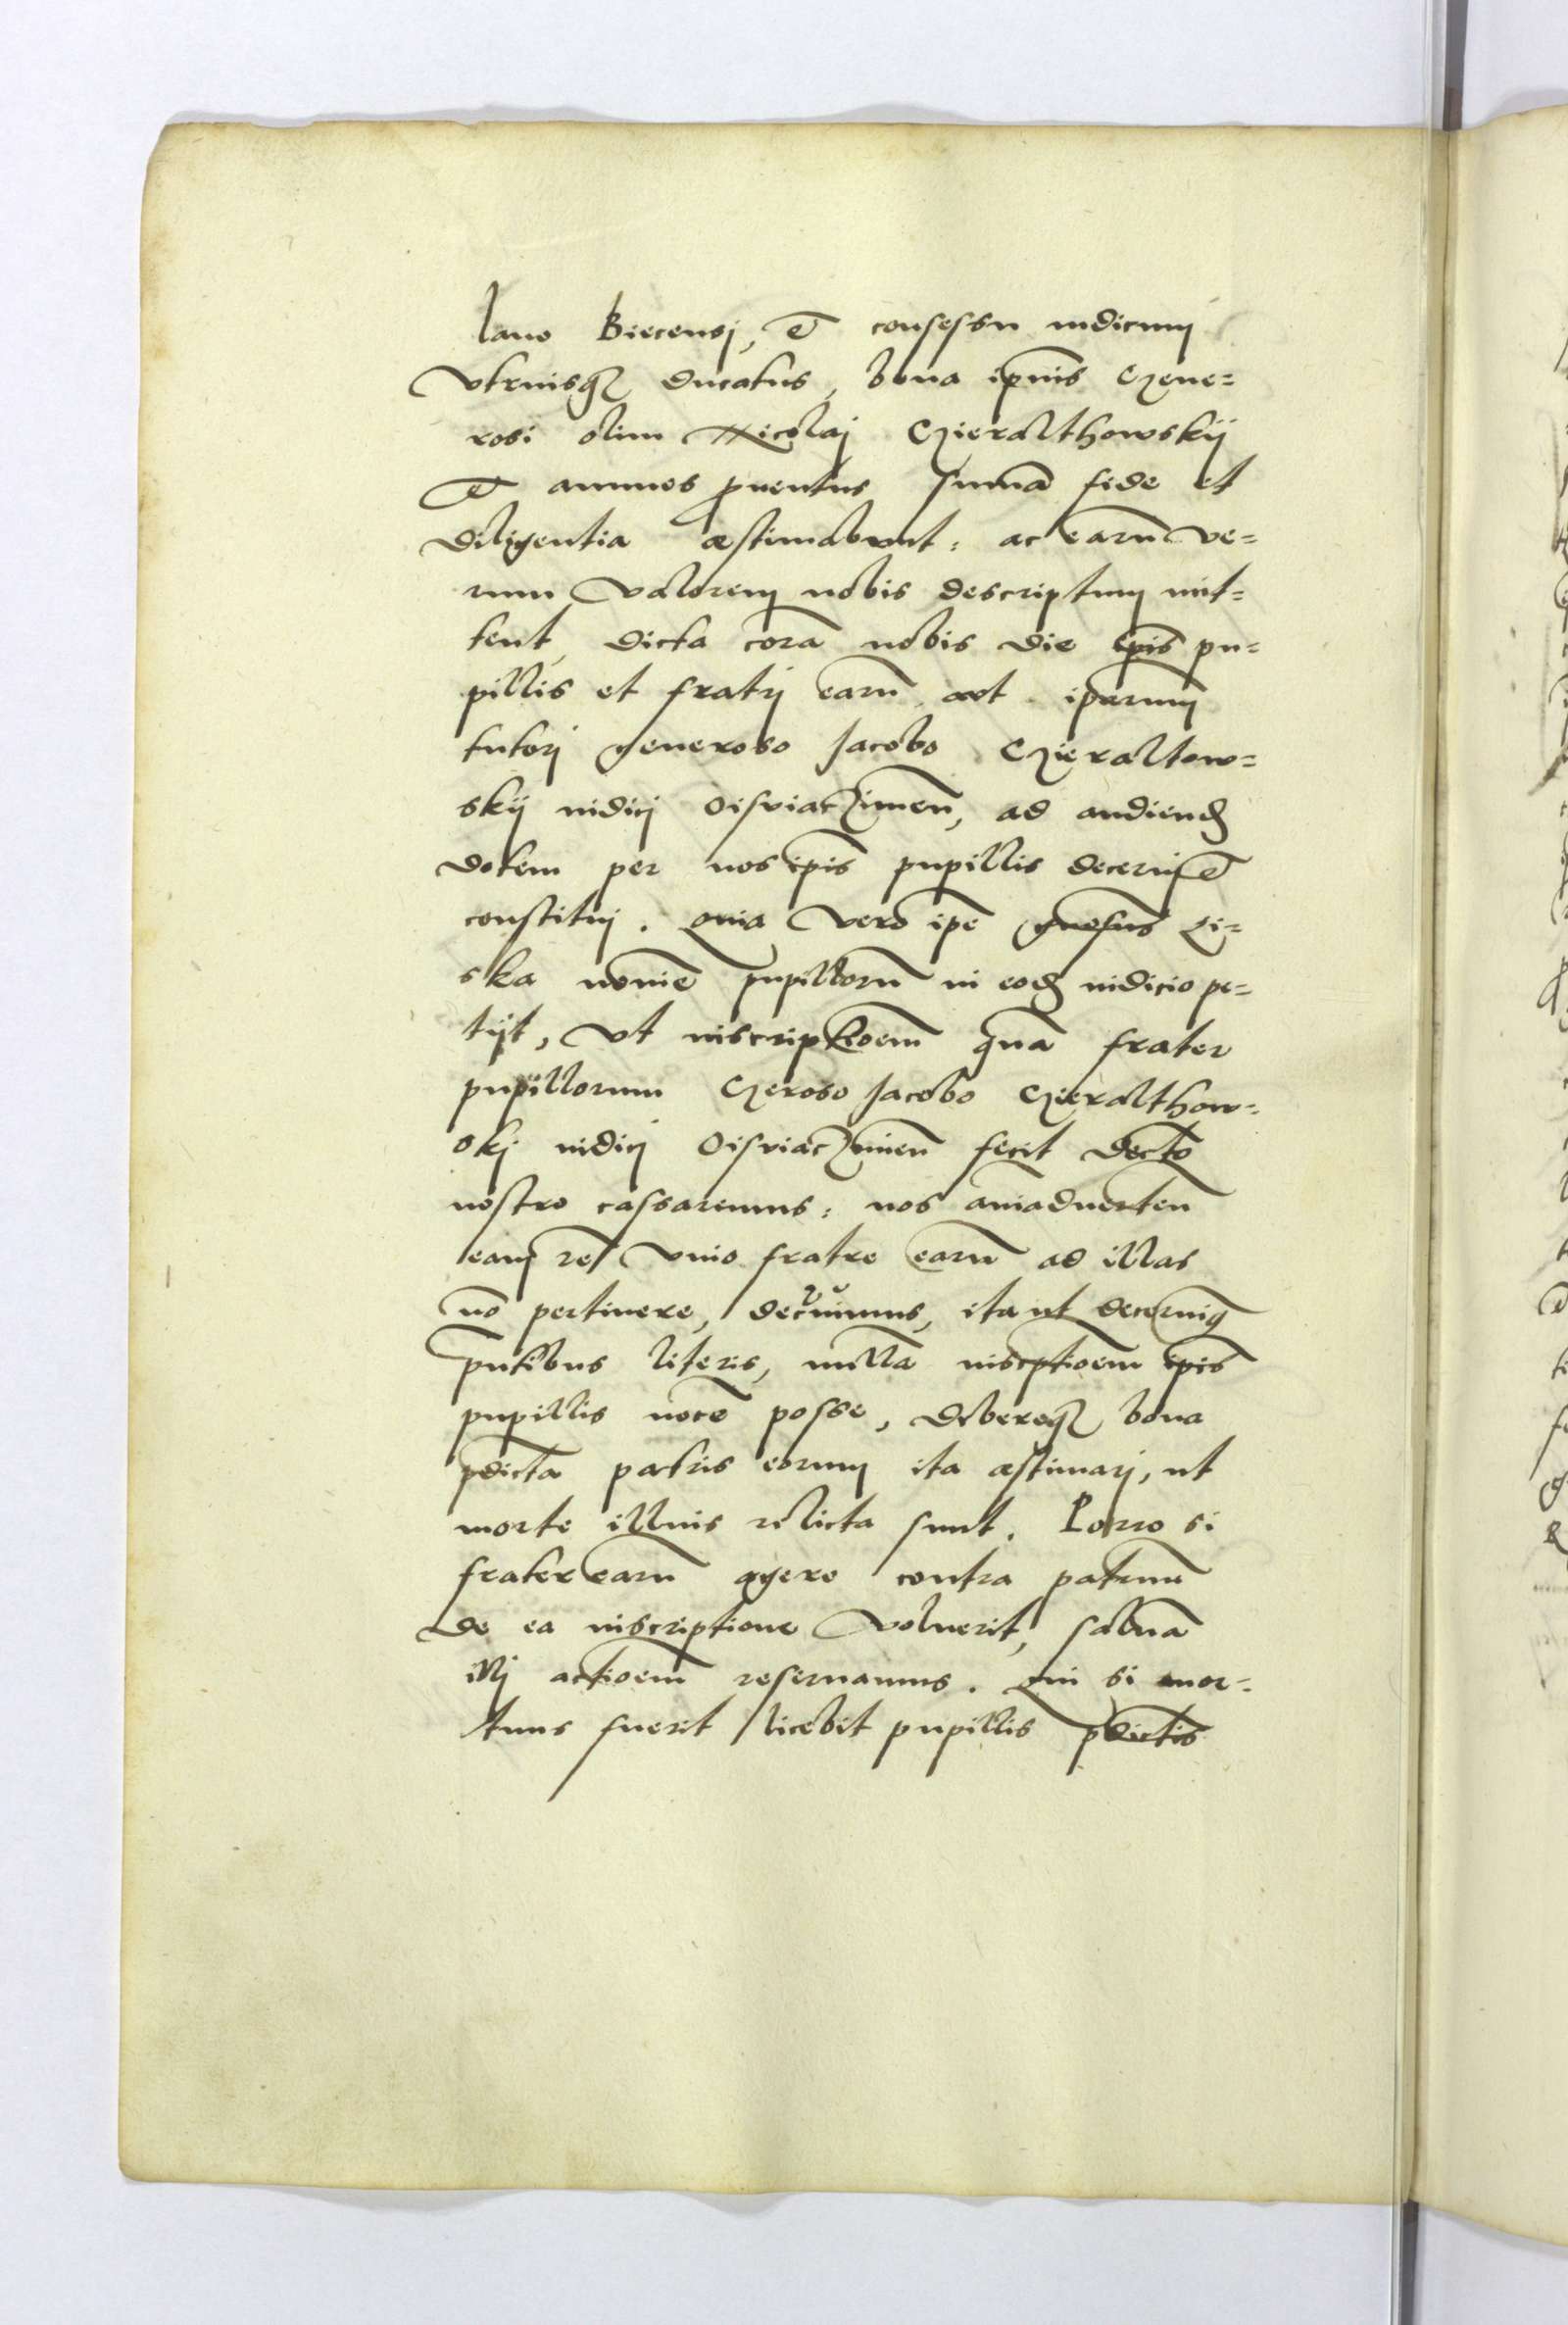 lano Biecensi, et consessu iudicum
vtriusq₃ ducatus, bona ipsius Gene=
rosi olim Nicolaj Gieralthowskij
et annuos ꝓuentus sum̄a fide et
diligentia æstimabunt: ac earū ve=
rum valorem nobis descriptum mit=
tent, dicta corā nobis die ip̄is pu=
pillis et fratrj earū aut iparum
tutorj generoso Jacobo Gieraltow=
skij iudicj Osviaczimeñ, ad audiend
dotem per nos ip̄is pupillis decernj et
constituj. Quia vero ip̄e gnosus Zi=
ska noīe pupillorū in eod iudicio pe=
tijt, vt inscriptioem̄ quā frater
pupillorum Geroso Jacobo Gieralthow=
skj iudicj Osviaczimeñ fecit decto
nostro cassaremus: nos aīaduerteñ
eam rem vnio fratre earū ad illas
nō pertinere, decreuimus, ita ut decernimq
pn̄tibus literis, nullā inscptioem̄ ip̄is
pupillis nocē posse, debereq₃ bona
pdicta patris eorum ita æstimarj, ut
morte illius relicta sunt. Porro si
frater earū agere contra patruū
de ea inscriptione voluerit, saluā
illj actioem̄ reseruamus. Qui si mor=
tuus fuerit licebit pupillis pdictis